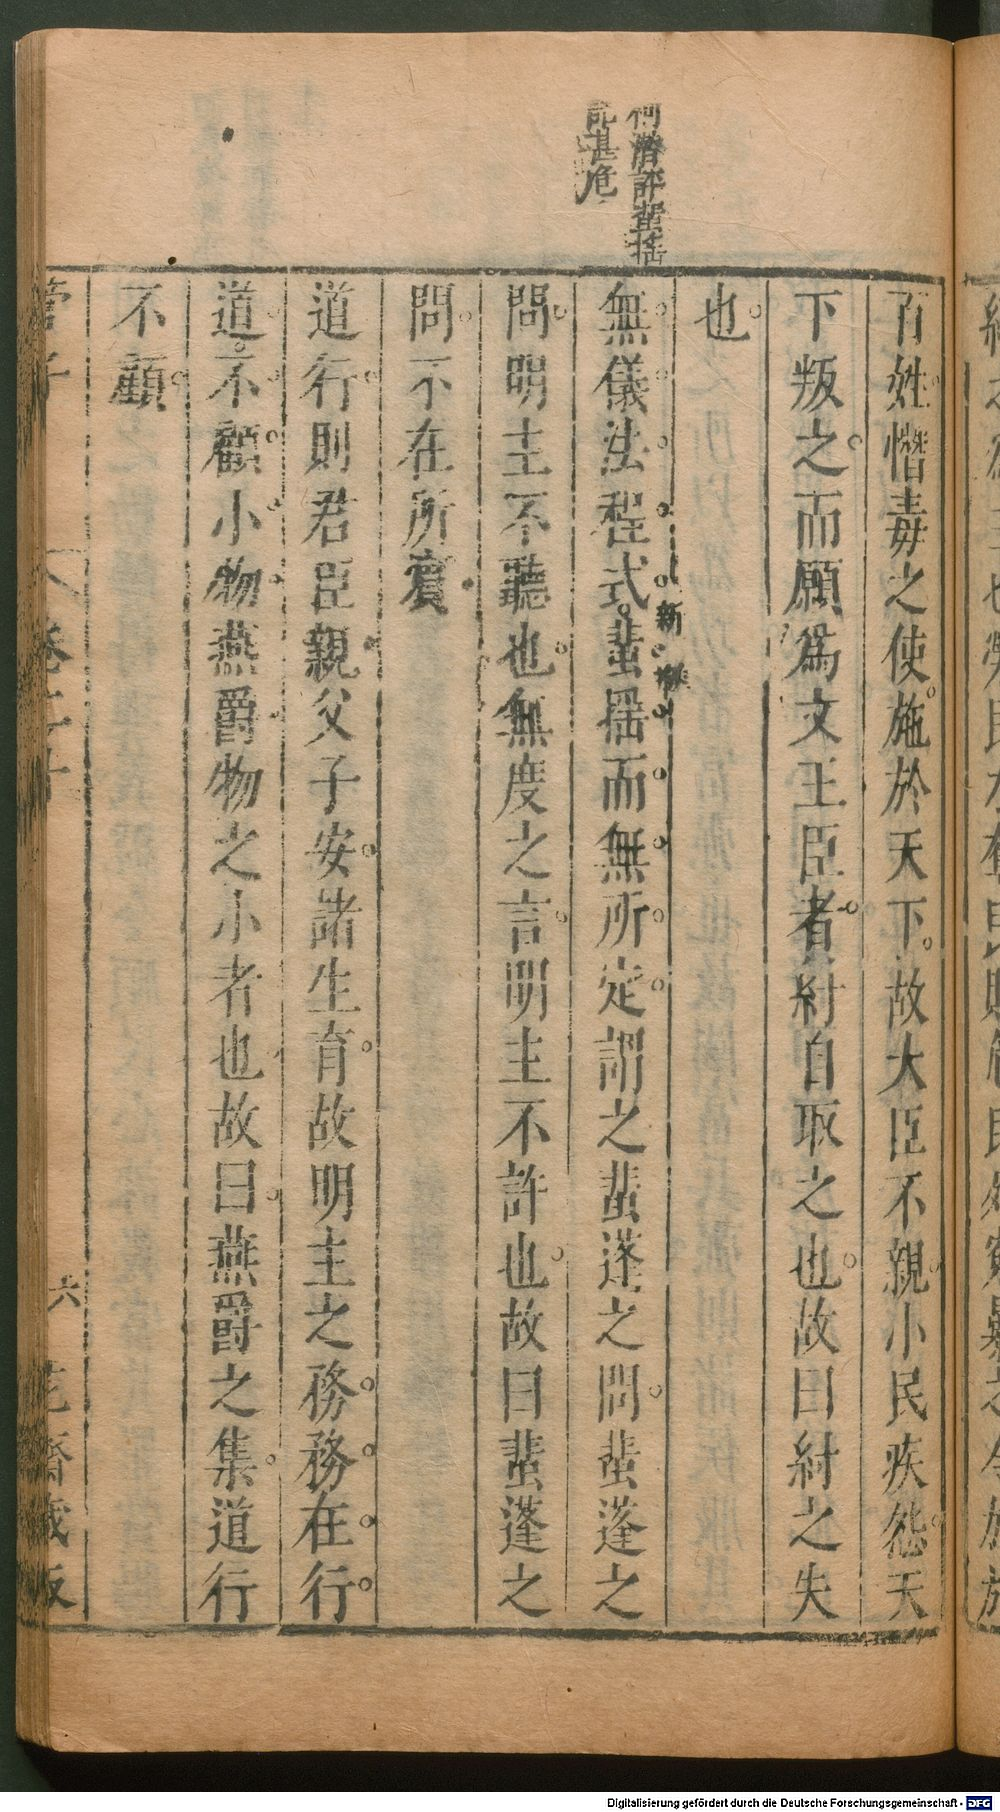 百姓憯毒之使施於天下故大臣不親小民疾怨天
下叛之而願爲文王臣者紂自取之也故曰紂之失
也
無儀法程式蜚搖而無所定謂之蜚蓬之問蜚蓬之
新
問明主不聽也無度之言明主不許也故曰蜚蓬之
問不在所賓
道行則君臣親父子安諸生育故明主之務務在行
道不顧小物燕爵物之小者也故曰燕爵之集道行
不顧
管子
卷二十
六
花齋藏板
Digitalisierung gefördert durch die Deutsche Forschungsgemeinschaft - DFG